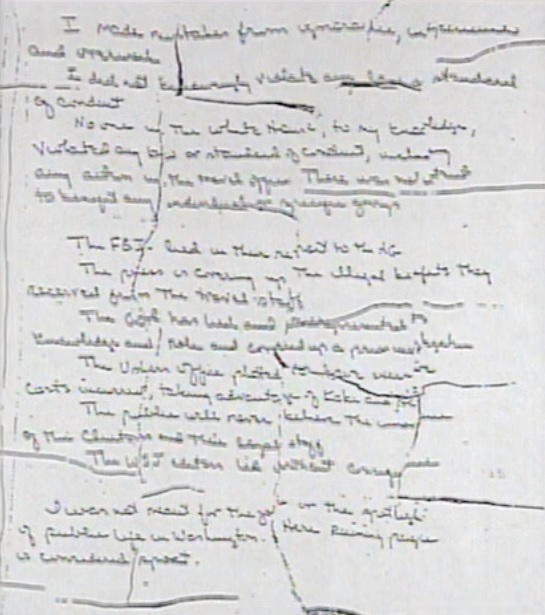 I made mistakes from ignorance, inexperience
and overwork
I did not knowingly violate any law or standard
of conduct
No one in The White House, to my knowledge,
violated any law or standard of conduct, including
any action in the travel office. There was no intent
to benefit any individual or specific group
The FBI lied in their report to the AG
The press is covering up the illegal benefits they
received from the travel staff
The GOP has lied and misrepresented its
knowledge and role and covered up a prior investigation
The Ushers Office plotted to have excessive
costs incurred, taking advantage of Kaki and HRC
The public will never believe the innocence
of the Clintons and their loyal staff
The WSJ editors lie without consequence
I was not meant for the job or the spotlight
of public life in Washington. Here ruining people
is considered sport.